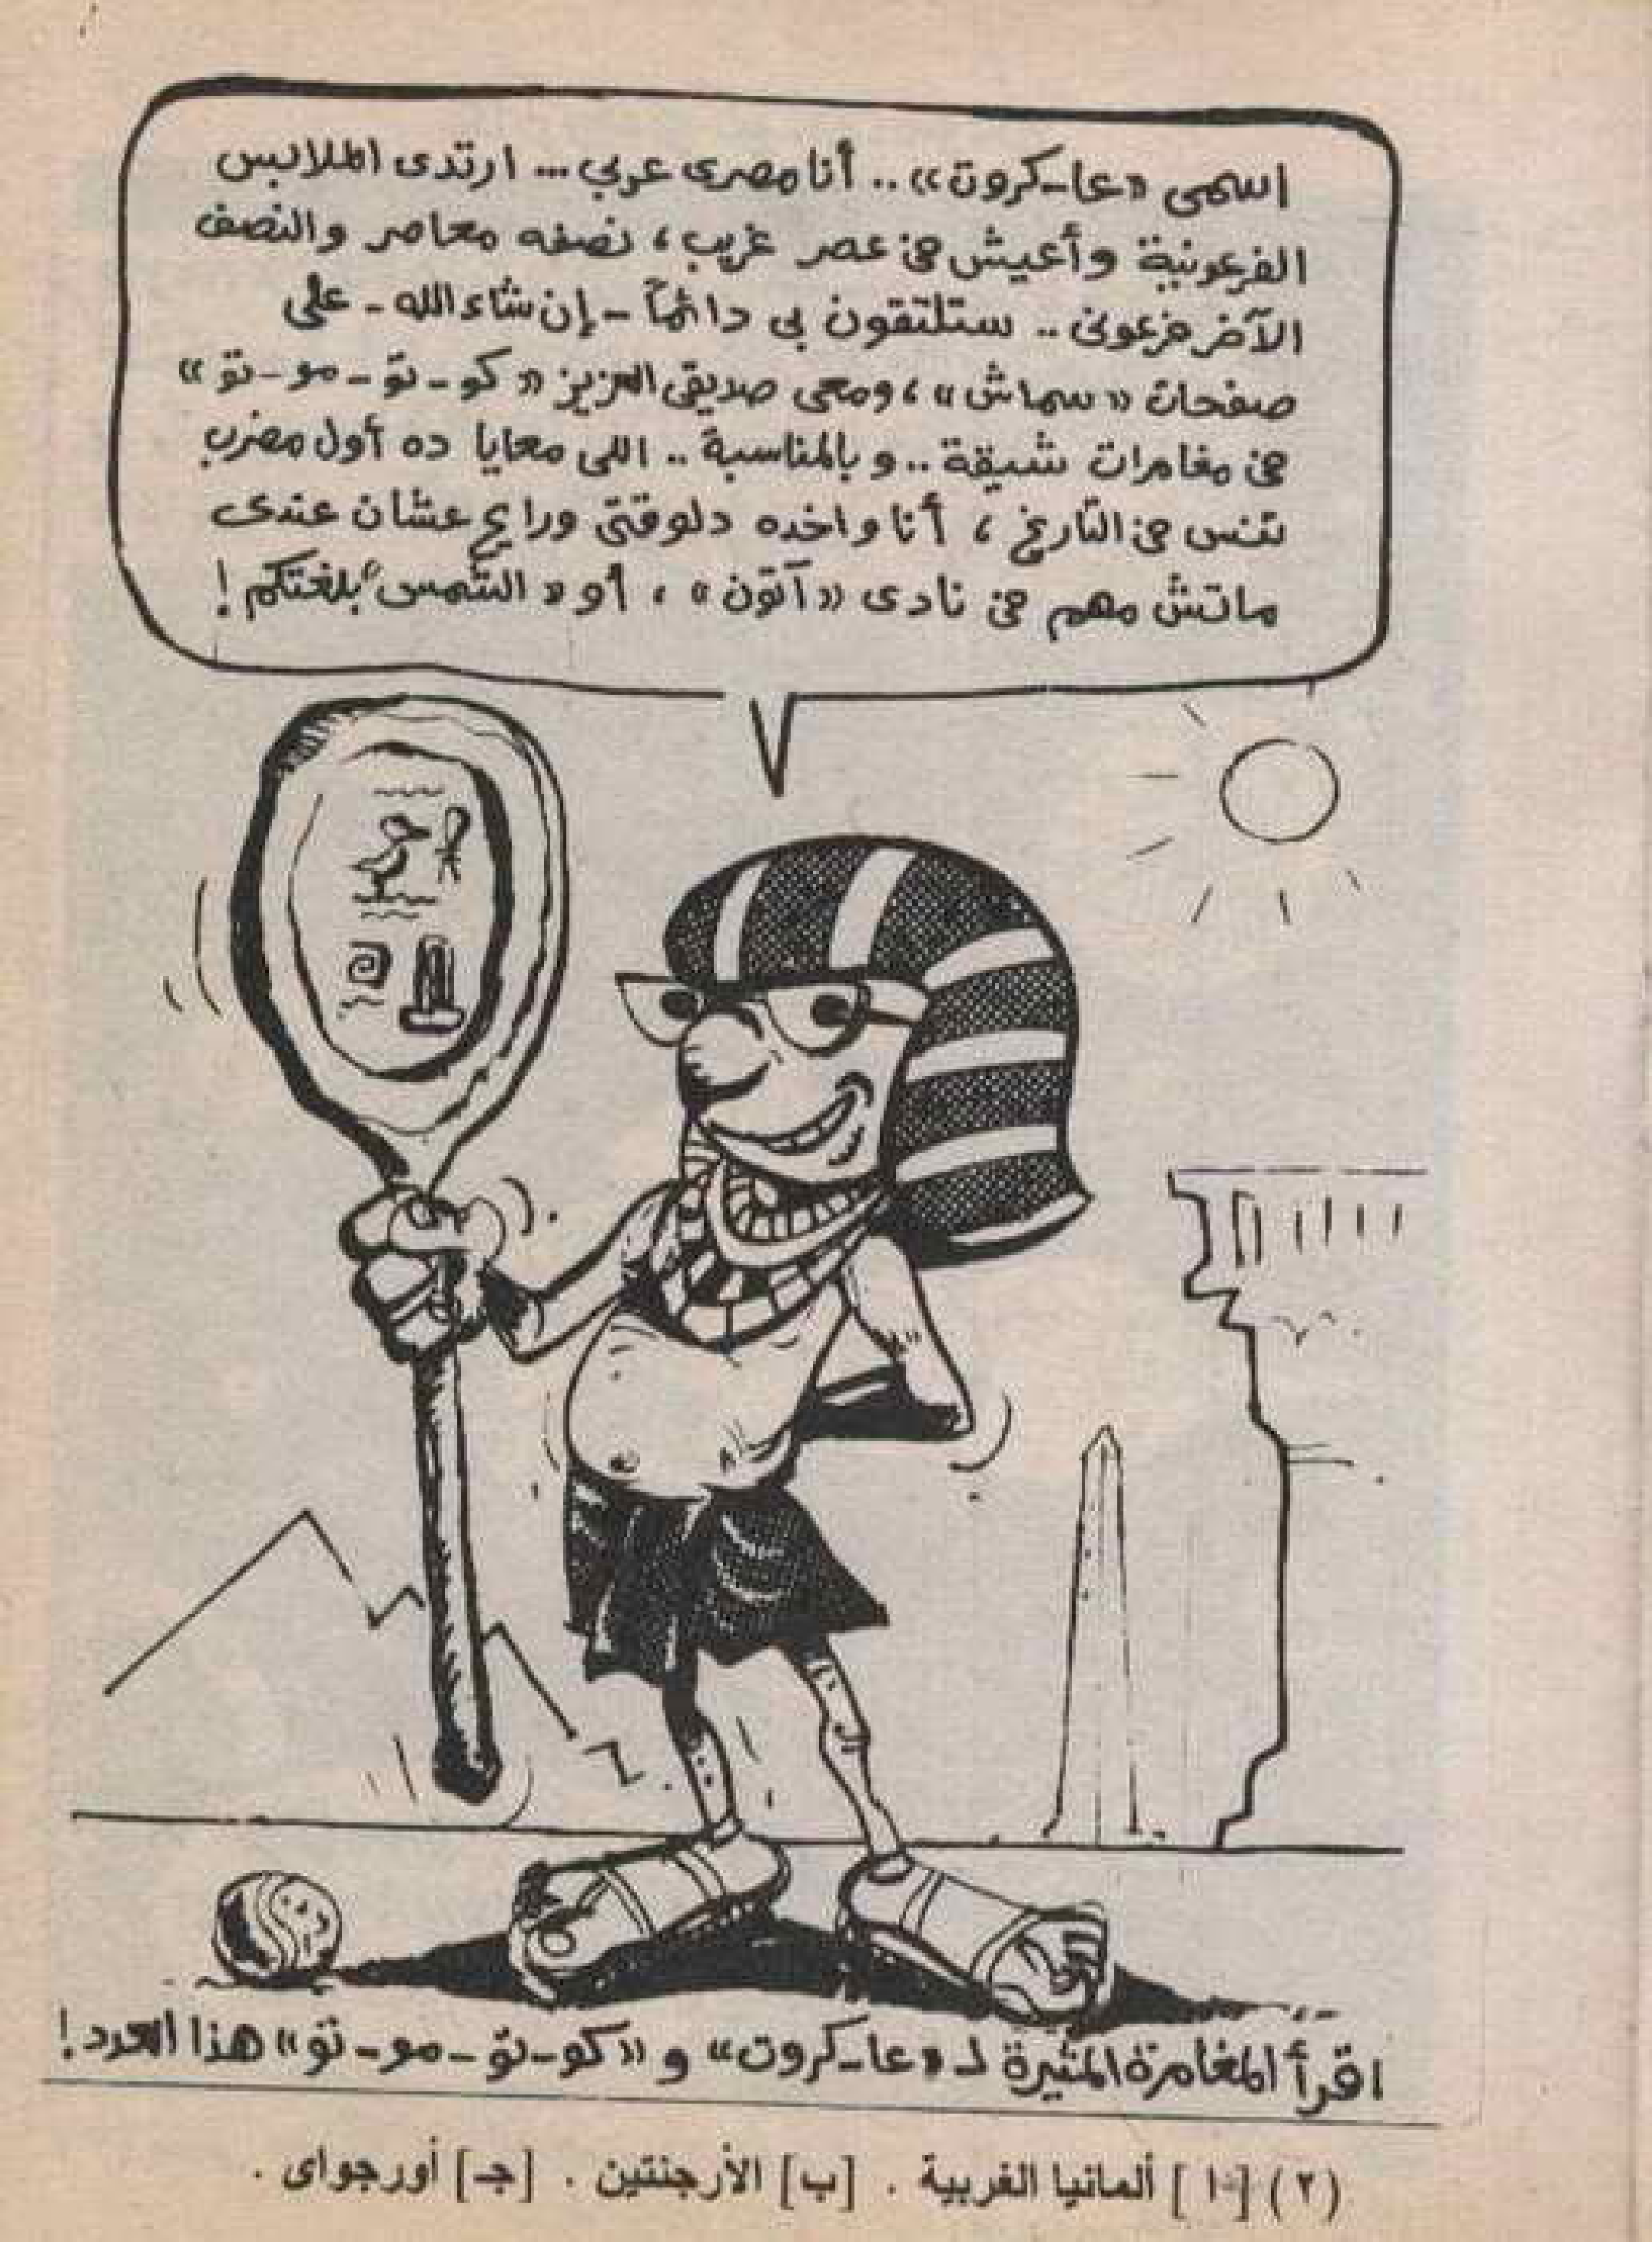 اسمى «عا-كروت» .. أنا مصرى عربي ... ارتدى الملابس
الفرعونية وأعيش فى عصر غريب، نصفه معاصر والنصف
الآخر فرعونى .. ستلتقون بى دائماً - إن شاء الله - على
صفحات «سماش»، ومعى صديقى العزيز «كو-تو-مو-تو»
فى مغامرات شيقة .. وبالمناسبة .. اللى معايا ده أول مضرب
تنس فى التاريخ، أنا واخده دلوقتى ورايح عشان عندى
ماتش مهم فى نادى «آتون»، أو «الشمس» بلغتكم!
اقرأ المغامرة المثيرة لـ «عا-كروت» و «كو-تو-مو-تو» هذا العدد!
(٢) [ ا ] ألمانيا الغربية . [ب] الأرجنتين . [جـ] أورجواى .